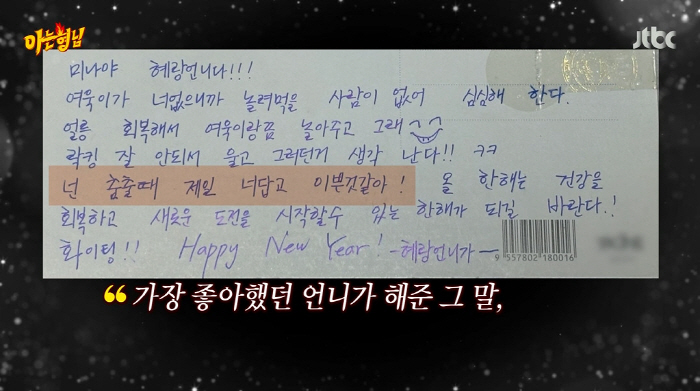 아는형님
jtbc
미나야 혜랑언니다!!!
여욱이가 너없으니까 놀려먹을 사람이 없어 심심해 한다.
얼릉 회복해서 여욱이랑쫌 놀아주고 그래
락킹 잘 안되서 울고 그러던거 생각 난다!! ㅋㅋ
넌 춤출때 제일 너답고 이쁜것같아! 올 한해는 건강을
회복하고 새로운 도전을 시작할수 있는 한해가 되길 바란다.!
화이팅!! Happy New Year! -혜랑언니가-
9 557802 180016
“ 가장 좋아했던 언니가 해준 그 말,